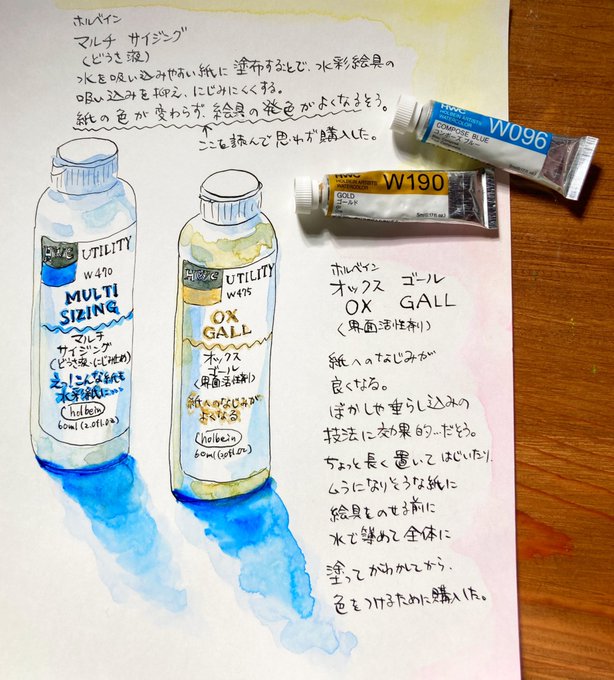 ホルベイン
マルチ サイジング
(どうさ液)
水を吸い込みやすい紙に塗布することで、水彩絵具の
吸い込みを抑え、にじみにくくする。
紙の色が変わらず、絵具の発色がよくなるそう。
ここを読んで思わず購入した。
HWC
HOLBEIN ARTISTS
WATERCOLOR
W096
COMPOSE BLUE
コンポーズ ブルー
HWC
HOLBEIN ARTISTS
WATERCOLOR
W190
GOLD
ゴールド
5ml(0.17fl.oz.)
HWC
UTILITY
W470
MULTI
SIZING
マルチ
サイジング
(どうさ液・にじみ止め)
えっ!こんな紙も
水彩紙に…
holbein
60ml(2.0fl.oz)
HWC
UTILITY
W475
OX
GALL
オックス
ゴール
(界面活性剤)
紙へのなじみが
よくなる
holbein
60ml(2.0fl.oz)
ホルベイン
オックス ゴール
OX GALL
(界面活性剤)
紙へのなじみが
良くなる。
ぼかしや垂らし込みの
技法に効果的…だそう。
ちょっと長く置いてはじいたり、
ムラになりそうな紙に
絵具をのせる前に
水で薄めて全体に
塗ってかわかしてから、
色をつけるために購入した。